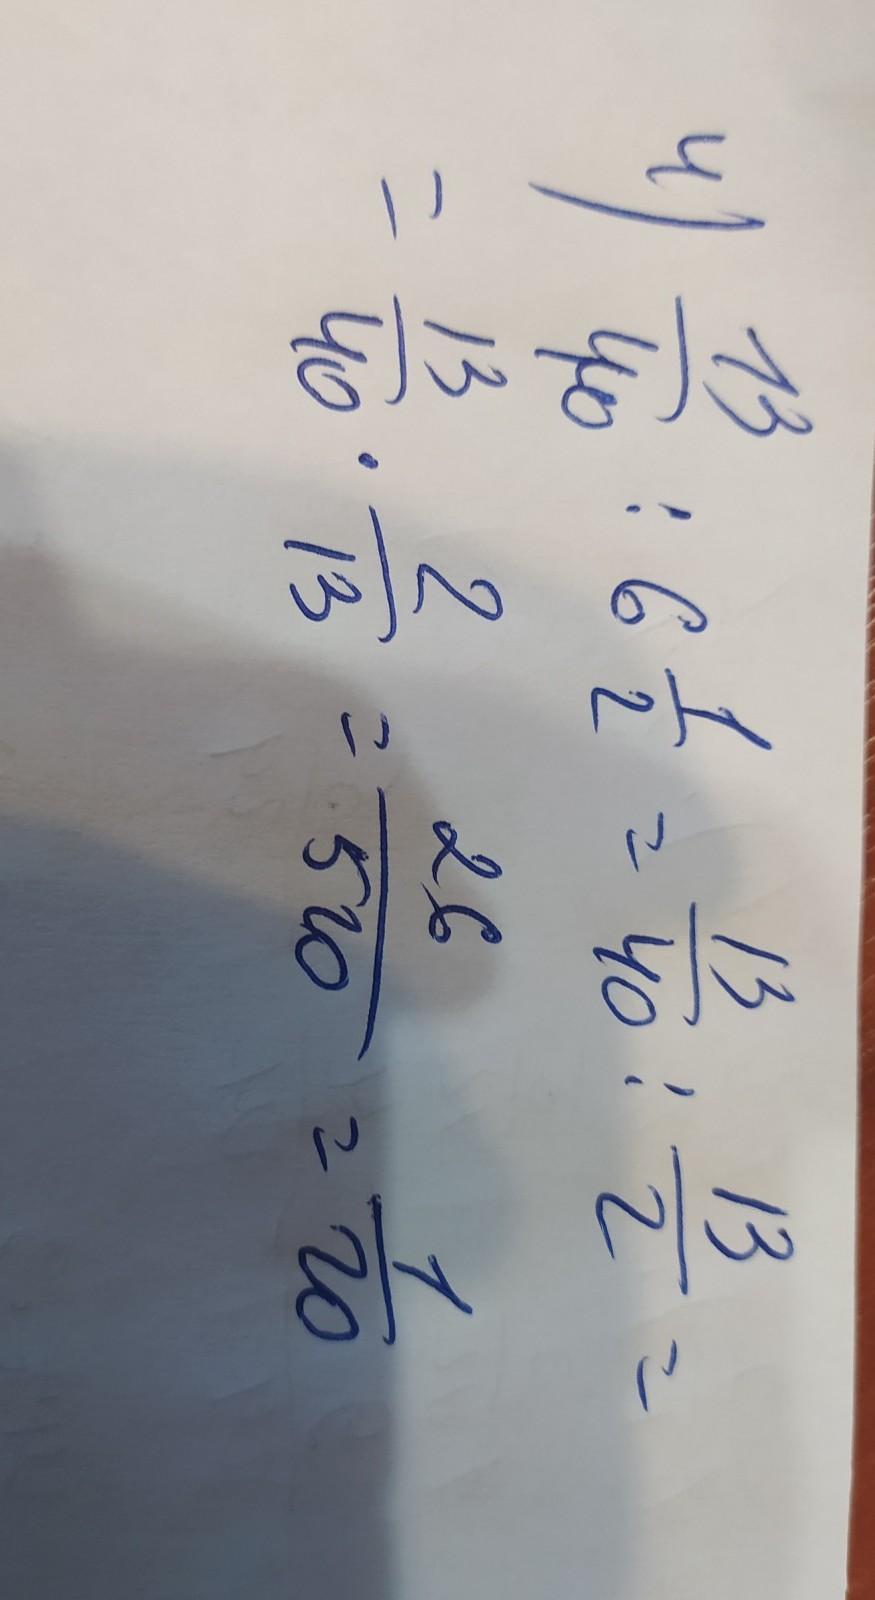 4) 13/40 : 6 1/2 = 13/40 : 13/2 =
= 13/40 · 2/13 = 26/540 = 1/20